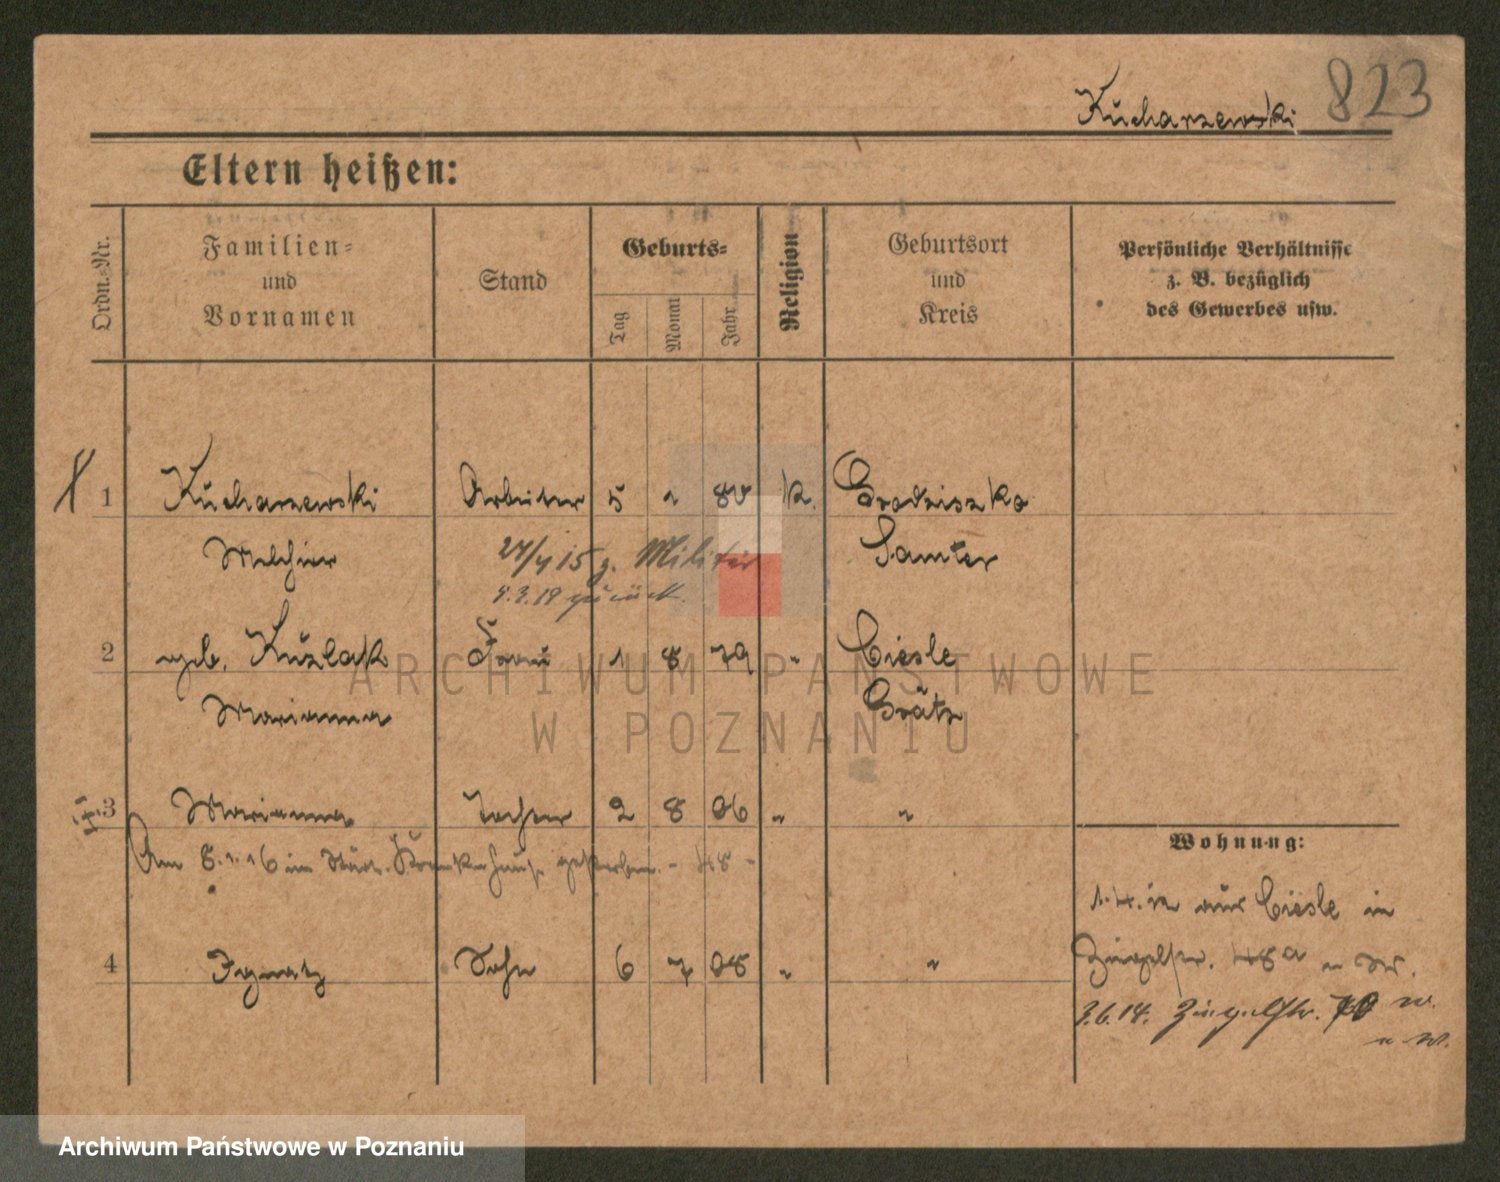 Kucharzewski 823
Eltern heißen:
Ordn.-Nr.
Familien-
und
Vornamen
Stand
Geburts-
Tag
Monat
Jahr
Religion
Geburtsort
und
Kreis
Persönliche Verhältnisse
z. B. bezüglich
des Gewerbes usw.
1 Kucharzewski Arbeiter 5 1 80 k. Grodziszko
Melchior 24/4 15 z. Militär Samter
9.3.19 zurück.
2 geb. Kuzlak Frau 1 8 79 " Ciesle
Marianna Grätz
3 Marianna Tochter 2 8 06 " "
Am 8.1.16 im Städt. Krankenhause gestorben. - 48 -
4 Ignatz Sohn 6 7 08 " "
Wohnung:
1.4.12 aus Ciesle in
Ziegelstr. 48a
3.6.14. Ziegelstr. 70 w.
ARCHIWUM PAŃSTWOWE
W POZNANIU
Archiwum Państwowe w Poznaniu